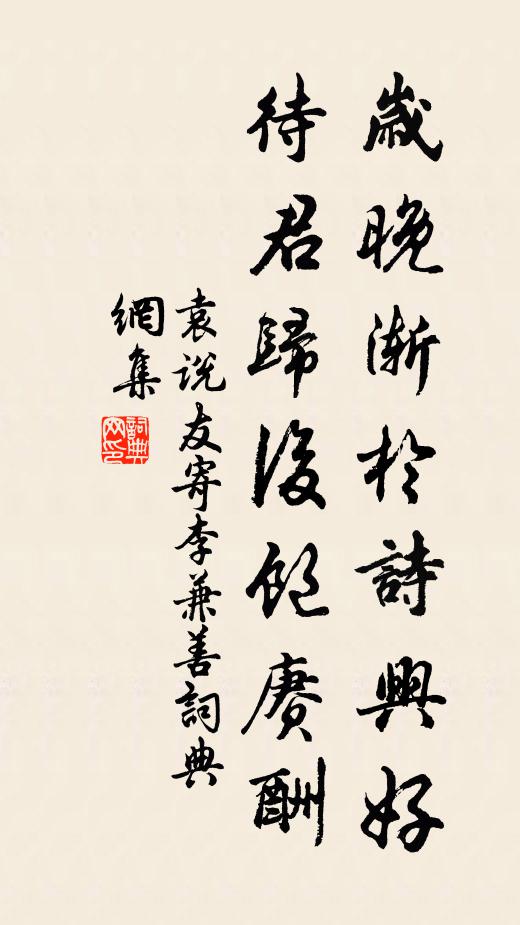 歲晚漸於詩興好
待君歸後飽賡酬
袁説友寄李兼善詞典
網集
詞典網印